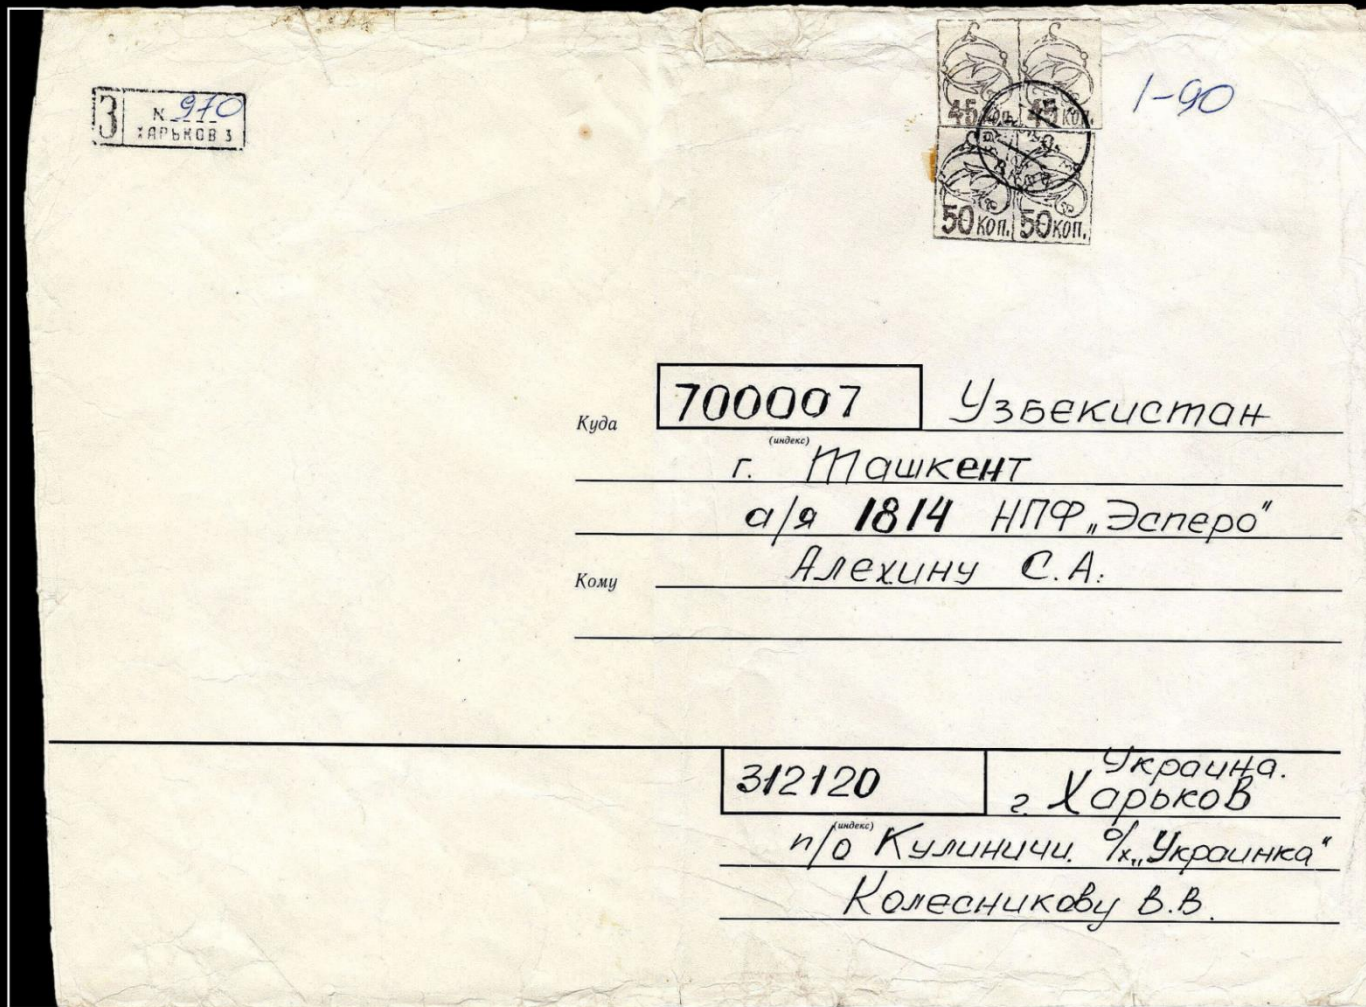 З № 970
ХАРЬКОВ 3
45 коп. 45 коп.
50 коп. 50 коп.
1-90
Куда 700007 Узбекистан
(индекс)
г. Ташкент
а/я 1814 НПФ „Эсперо"
Кому Алехину С.А.
312120 Украина.
г. Харьков
(индекс)
п/о Кулиничи. о/х „Украинка"
Колесникову В.В.